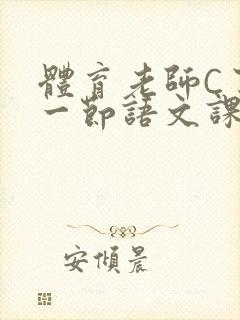 體育老師C
一節語文課
安傾晨